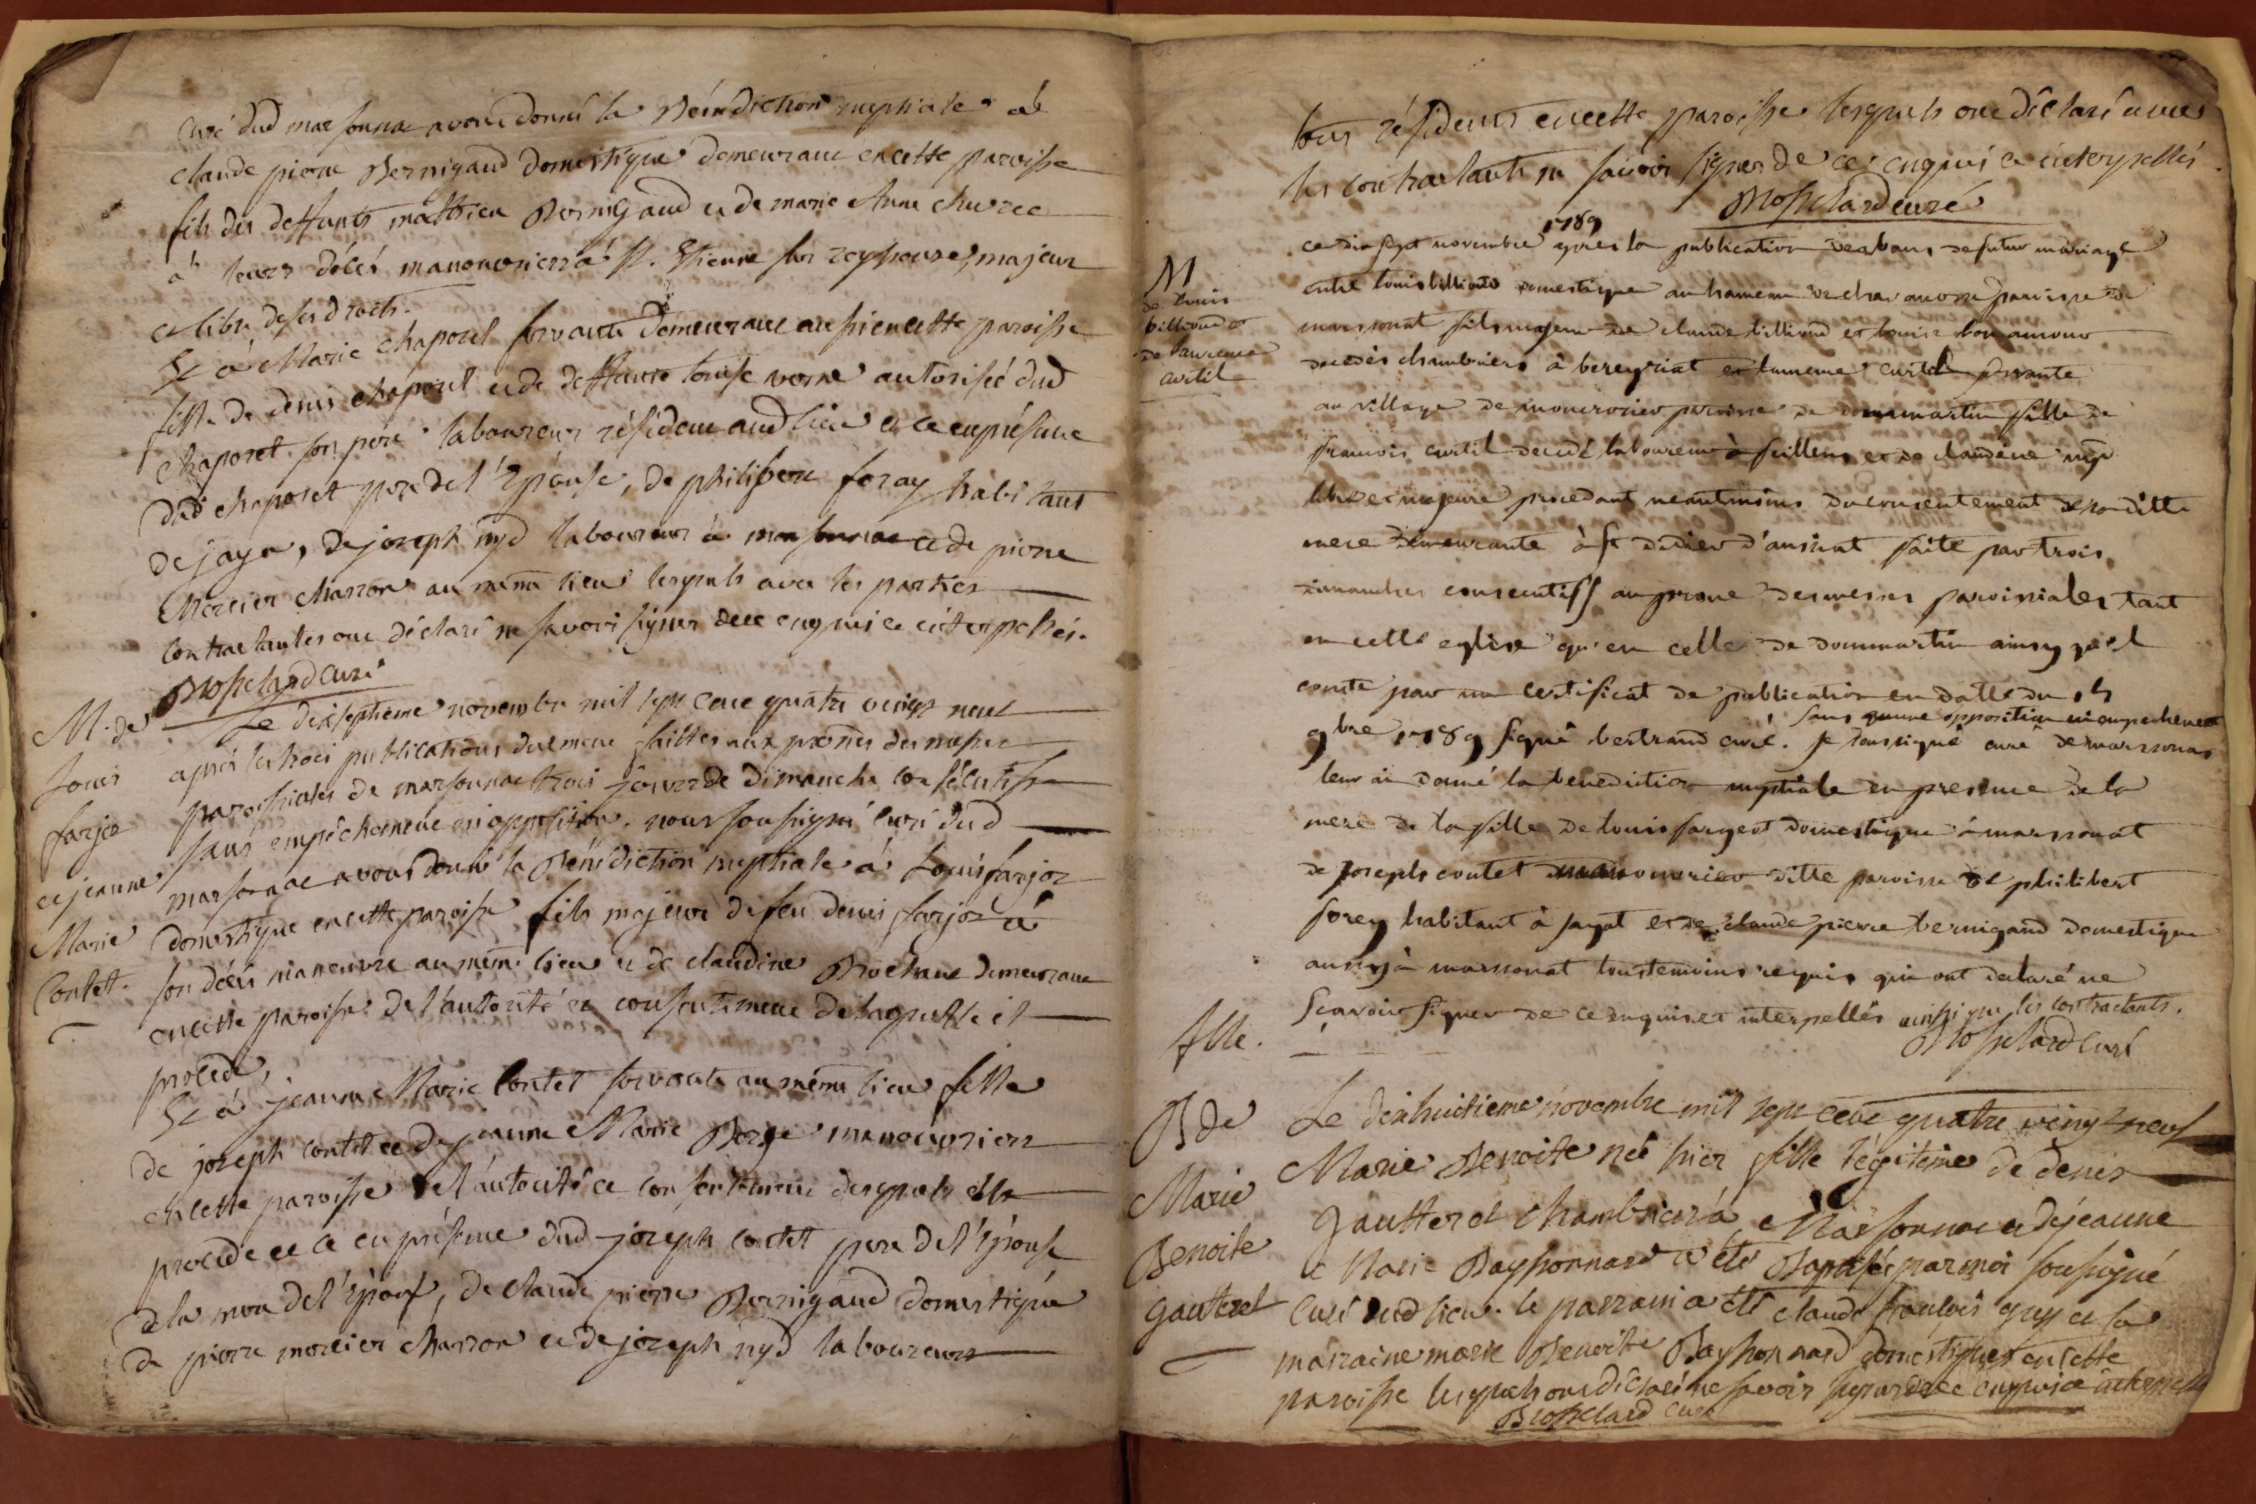 curé dud marsonnac avons donné la Bénédiction nuptiale à
claude pierre Bernigaud domestique demeurant en cette paroisse
fils des deffunts mathieu Bernigaud et de marie Anne
à leurs décés manouvriers à St. Etienne sur reyssouze, majeur
et libre de ses droits.
Et à Marie chaposet servante demeurant aussi en cette paroisse
fille de denis chaposet et de deffunte louise autorisée dud
chaposet son père laboureur résident aud lieu et ce en présence
dud chaposet père de l'Epouse, de philibert foray habitant
de jaya, de joseph nyd laboureur à marsonnac et de pierre
mercier charron au même lieu lesquels avec les parties
contractantes ont déclaré ne savoir signer de ce enquis et interpellés.
Brosselard curé
M. de
Louis
farjot
et jeanne
Marie
Contet.
Le dixseptieme novembre mil sept cent quatre vingt neuf
après les trois publications duement faittes aux prônes des messes
paroissiales de marsonnac trois jours de dimanche consécutifs
sans empêchement ni opposition. nous soussigné curé dud
marsonnac avons donné la Bénédiction nuptiale à Louis farjot
domestique en cette paroisse fils majeur de feu denis farjot à
son décés manouvrier au même lieu et de claudine Brochand demeurant
en cette paroisse de l'autorité et consentement de laquelle il
procède,
Et à jeanne Marie Contet servante au même lieu fille
de joseph contet et de jeanne Marie Berge manouvriers
en cette paroisse de l'autorité et consentement desquels elle
procède et ce en présence dud joseph contet père de l'Epouse
de la mère de l'Epoux, de claude pierre Bernigaud domestique
de pierre mercier charron et de joseph nyd laboureurs
tous résidents en cette paroisse lesquels ont déclaré avec
les contractants ne savoir signer de ce enquis et interpellés.
Brosselard curé
M
de louis
billioud et
de laurence
curtil
ce dix sept novembre 1789 après la publication des bans de futur mariage
entre louis billioud domestique au hameau de paroisse de
marsonnat fils majeur de claude billioud et louise bonamour
decedés chambriers à bereyziat et laurence curtil servante
au village de paroisse de dommartin fille de
francois curtil decedé laboureur à et de claudine
libre et majeure procedant neantmoins du consentement de sa ditte
mere demeurante à st didier d'aussiat faite par trois
dimanches consecutifs au prone des messes paroissiales tant
en cette eglise qu'en celle de dommartin ainsy qu'il
conste par un certificat de publication en datte du
9bre 1789 signé bertrand curé. sans aucune opposition ni empechement je soussigné curé de marsonnas
leur ai donné la benediction nuptiale en presence de la
mere de la fille de louis fargeot domestique à marsonnat
de joseph contet manouvrier ditte paroisse de philibert
forey habitant à jayat et de claude pierre bernigaud domestique
aussy à marsonnat tous temoins requis qui ont declaré ne
scavoir signer de ce enquis et interpellés ainsi que les contractants.
Brosselard curé
fille.
B de
Marie
Benoite
gautteret
Le dixhuitieme novembre mil sept cent quatre vingt neuf
Marie Benoite née hier fille légitime de denis
gautteret chambrier à Marsonnac et de jeanne
Marie Bayhonnard a été Baptisée par moi soussigné
curé dud lieu. le parrain a été claude francois et la
marraine marie Benoitte Bayhonnard domestiques en cette
paroisse lesquels ont déclaré ne savoir signer de ce enquis et interpellés
Brosselard curé